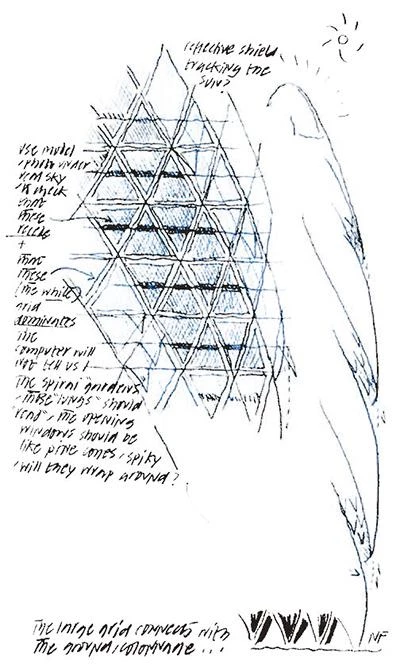 reflective shield
tracking the
sun?
use model
photo under
real sky
to check
that
these
recede
+
that
these
(the white)
grid
dominates
the
computer will
not tell us!
The spiral gardens
"these lungs" should
"read", the opening
windows should be
like pine cones, spiky
, will they wrap around?
The large grid connects with
the ground, colonnade ...
NF